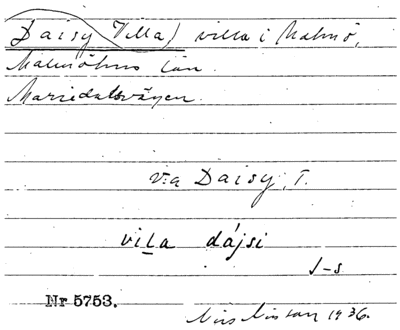 Daisy Villa) villa i Malmö,
Malmöhus län.
Mariedalsvägen.
v:a Daisy, T.
viLa dájsi
J-s
Nr 5753.
Nils Nilsson 1936.